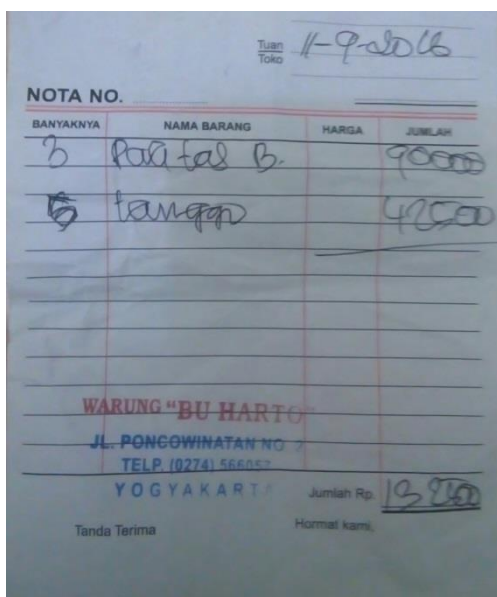 Tuan 11-9-2016
Toko
NOTA NO.
BANYAKNYA NAMA BARANG HARGA JUMLAH
3 B. 90000
5 tanggo 42500
WARUNG "BU HARTO"
JL. PONCOWINATAN NO
TELP. (0274)
YOGYAKARTA
Jumlah Rp. 132500
Tanda Terima Hormat kami,